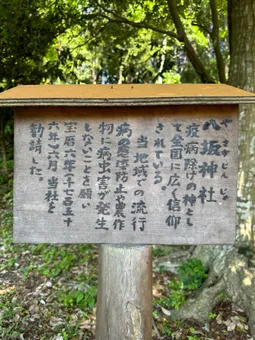 八坂神社
やさかじんじゃ
疫病除けの神とし
て全国に広く信仰
されている。
当地域での流行
病の蔓延防止や農作
物に病虫害が発生
しないことを願い
宝暦六年(一七五
六年)六月当社を
勧請した。